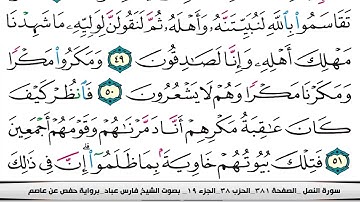 تَقَاسَمُوا۟ بِٱللَّهِ لَنُبَيِّتَنَّهُۥ وَأَهْلَهُۥ ثُمَّ لَنَقُولَنَّ لِوَلِيِّهِۦ مَا شَهِدْنَا
مَهْلِكَ أَهْلِهِۦ وَإِنَّا لَصَٰدِقُونَ ٤٩ وَمَكَرُوا۟ مَكْرًا
وَمَكَرْنَا مَكْرًا وَهُمْ لَا يَشْعُرُونَ ٥٠ فَٱنظُرْ كَيْفَ
كَانَ عَٰقِبَةُ مَكْرِهِمْ أَنَّا دَمَّرْنَٰهُمْ وَقَوْمَهُمْ أَجْمَعِينَ
٥١ فَتِلْكَ بُيُوتُهُمْ خَاوِيَةًۢ بِمَا ظَلَمُوٓا۟ۗ إِنَّ فِى ذَٰلِكَ
سورة النمل _الصفحة ٣٨١_ الحزب ٣٨_الجزء ١٩_ بصوت الشيخ فارس عباد_برواية حفص عن عاصم